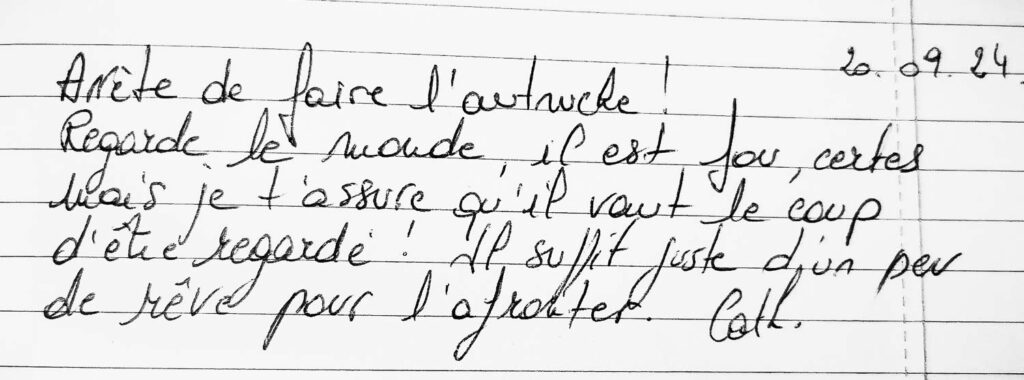 20.09.24
Arrête de faire l'autruche !
Regarde le monde, il est fou, certes
mais je t'assure qu'il vaut le coup
d'être regardé ! Il suffit juste d'un peu
de rêve pour l'afronter. Cath.